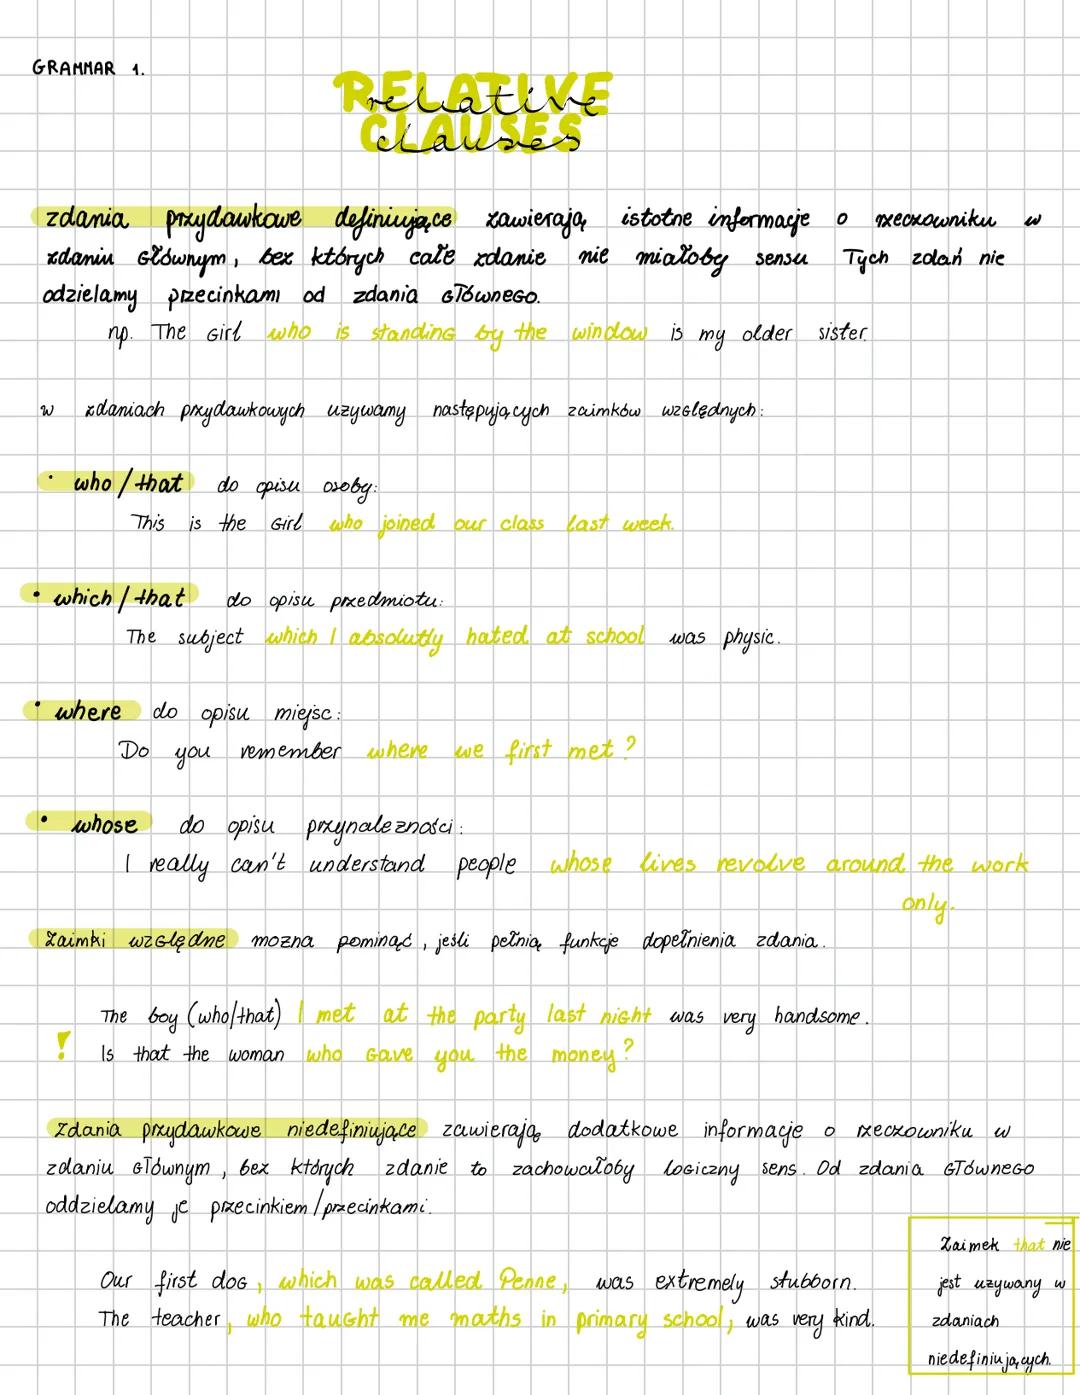 GRAMMAR 1.
RELATIVE
relative
CLAUSES
clauses
zdania przydawkowe definiujące zawierają istotne informacje o rzeczowniku w
zdaniu głównym, bez których całe zdanie nie miałoby sensu Tych zdań nie
odzielamy przecinkami od zdania głównego.
np. The girl who is standing by the window is my older sister.
w zdaniach przydawkowych używamy następujących zaimków względnych:
• who/that do opisu osoby:
This is the girl who joined our class last week.
• which/that do opisu przedmiotu:
The subject which I absolutly hated at school was physic.
• where do opisu miejsc:
Do you remember where we first met?
• whose do opisu przynalezności:
I really can't understand people whose lives revolve around the work
only.
Zaimki względne mozna pominąć, jeśli pełnią funkcje dopełnienia zdania.
The boy (who/that) I met at the party last night was very handsome.
! Is that the woman who gave you the money?
Zdania przydawkowe niedefiniujące zawierają dodatkowe informacje o rzeczowniku w
zdaniu głównym, bez których zdanie to zachowałoby logiczny sens. Od zdania głównego
oddzielamy je przecinkiem/przecinkami.
Our first dog, which was called Penne, was extremely stubborn.
The teacher, who taught me maths in primary school, was very kind.
Zaimek that nie
jest uzywany w
zdaniach
niedefiniujących.